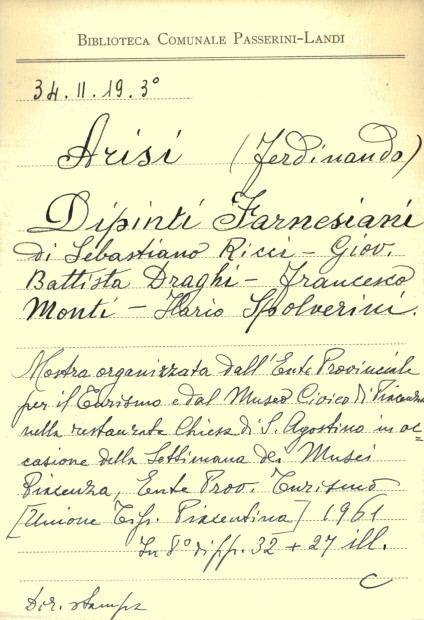 BIBLIOTECA COMUNALE PASSERINI-LANDI
34.II.19.3°
Arisi (Ferdinando)
Dipinti Farnesiani
di Sebastiano Ricci - Giov.
Battista Draghi - Francesco
Monti - Ilario Spolverini.
Mostra organizzata dall'Ente Provinciale
per il Turismo e dal Museo Civico di Piacenza
nella restaurata Chiesa di S. Agostino in oc=
casione della Settimana dei Musei
Piacenza, Ente Prov. Turismo
[Unione Tip. Piacentina] 1961
In 8° di pp. 32 + 27 ill.
C
Dir. stampa